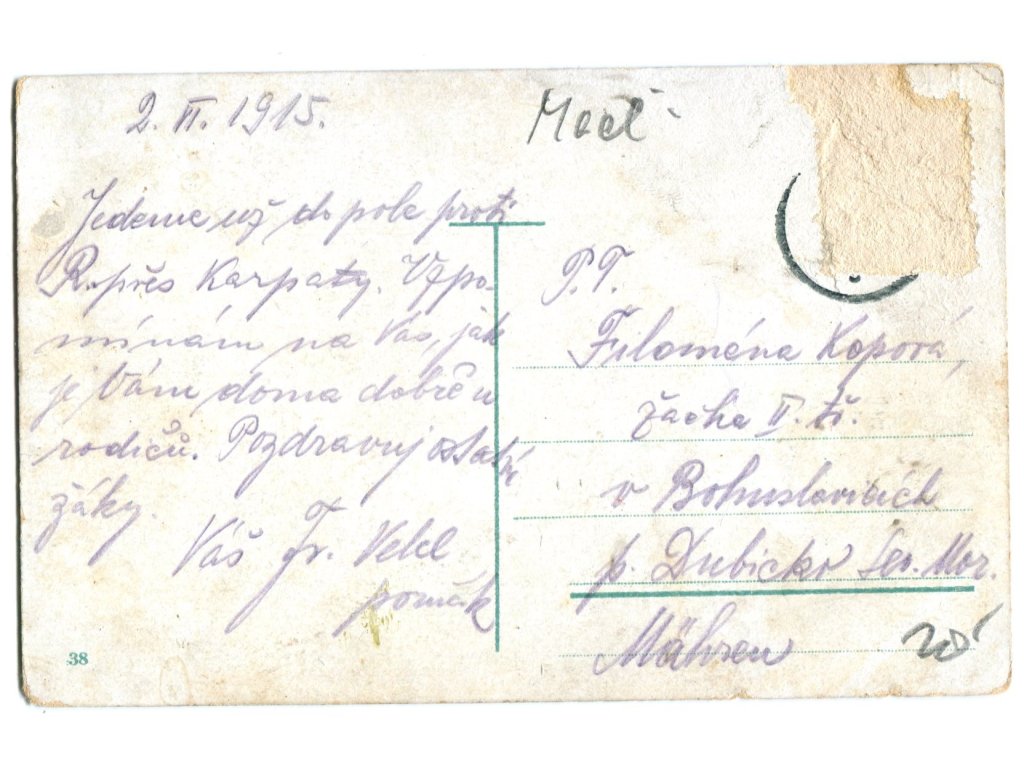 2. II. 1915.
Jedeme už do pole proti
R. přes Karpaty. Vzpo-
mínám na Vás, jak
je Vám doma dobře u
rodičů. Pozdravuj ostatní
žáky.
Váš Fr.
38
P.T.
Filoména Koporá,
žačka II. tř.
v Bohuslavicích
p. Dubicko Sev. Mor.
Mähren
20